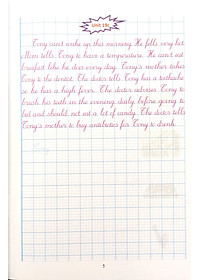 Unit 19c
Tony can't wake up this morning. He fells very hot.
Mom tells Tony to have a temperature. He can't eat
breakfast like he does every day. Tony's mother takes
Tony to the dentist. The doctor tells Tony has a toothache
so he has a high fever. The doctor advises Tony to
brush his teeth in the evening daily before going to
bed and should not eat a lot of candy. The doctor tells
Tony's mother to buy antibiotics for Tony to drink.
5